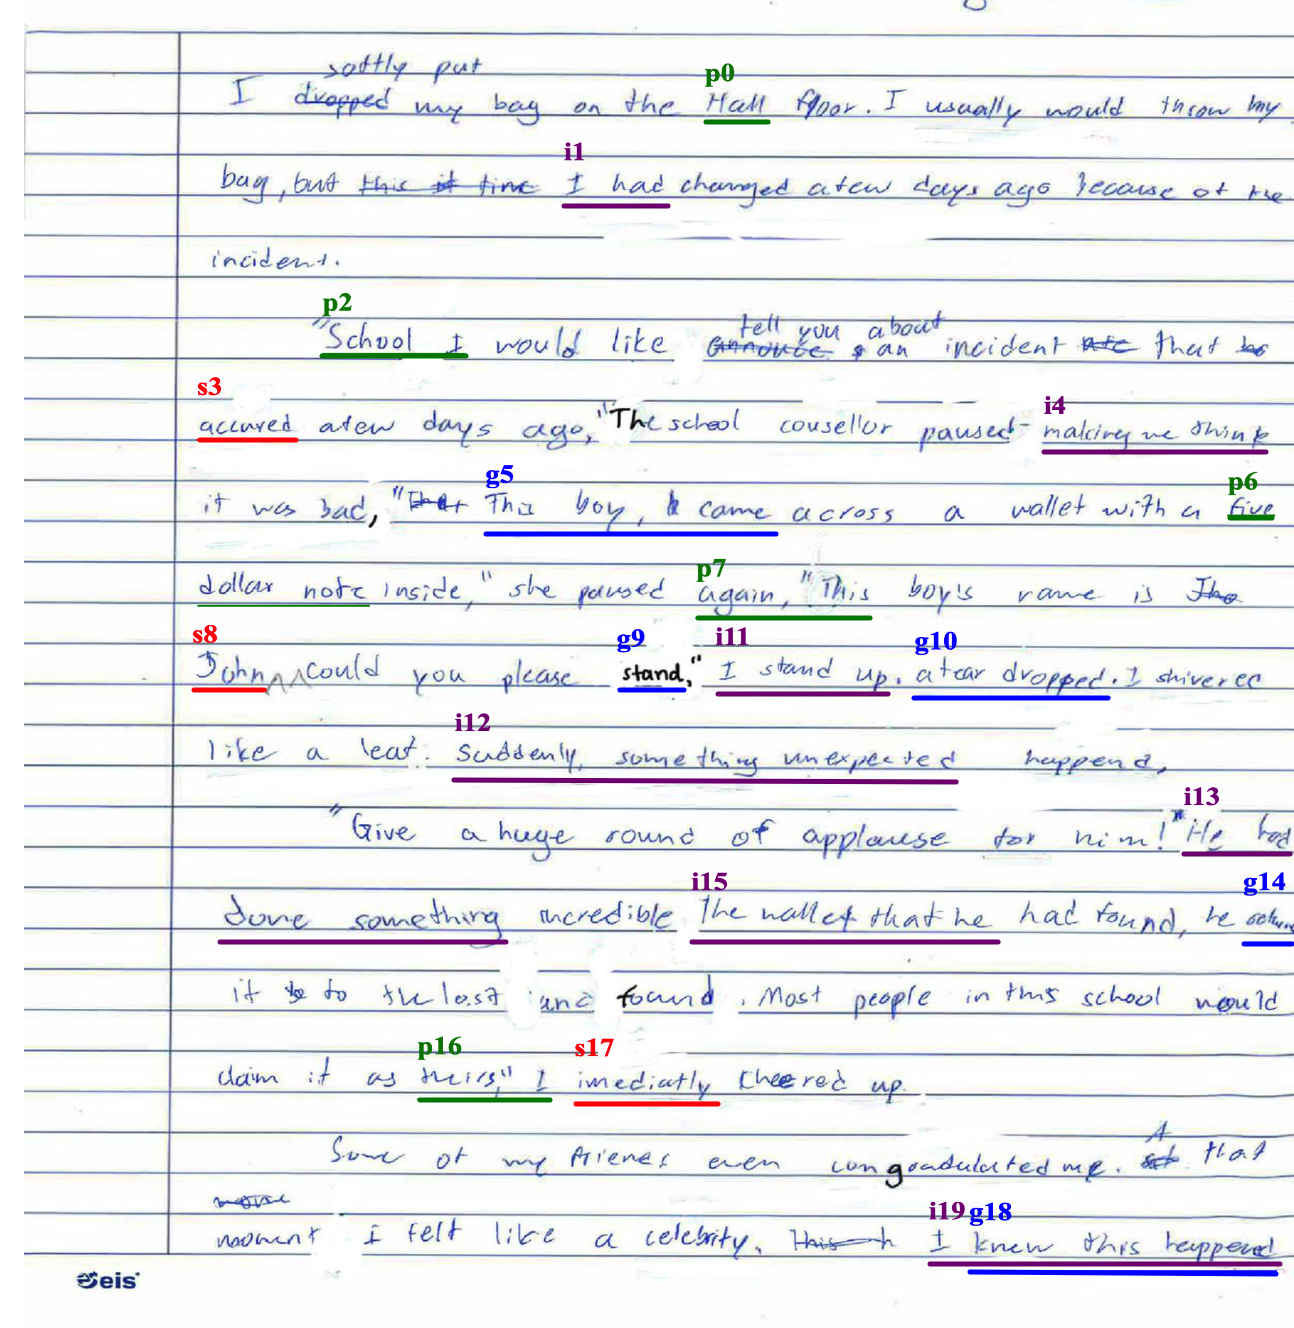 softly put
p0
I dropped my bag on the Hall floor. I usually would throw my
i1
bag, but this it time I had changed afew days ago because of the
incident.
p2
tell you about
"School I would like announce an incident that
s3
i4
accured afew days ago, "The school cousellor paused - making me think
g5
p6
it was bad, "That This boy, came across a wallet with a five
p7
dollar note inside," she paused again, "This boy's name is The
s8
g9
i11
g10
John could you please stand," I stand up. a tear dropped. I shivered
i12
like a leaf. Suddenly, something unexpected happend,
i13
"Give a huge round of applause for him!" He had
i15
g14
done something incredible The wallet that he had found, he return
it to the lost and found. Most people in this school would
p16
s17
claim it as theirs," I imediatly cheered up.
A
Some of my friends even congradulated me. that
i19 g18
moment I felt like a celebrity. This I knew this happend
eis